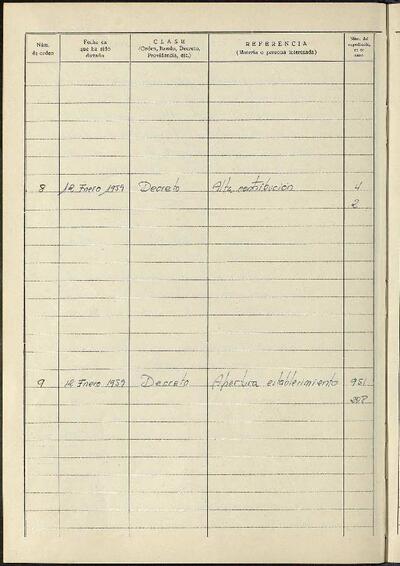 Núm. de orden
Fecha en que ha sido dictada
CLASE
(Orden, Bando, Decreto, Providencia, etc.)
REFERENCIA
(Materia o persona interesada)
Núm. del expediente, en su caso
8 12 Enero 1959 Decreto Alta contribución 4
2
9 12 Enero 1959 Decreto Apertura establecimiento 951